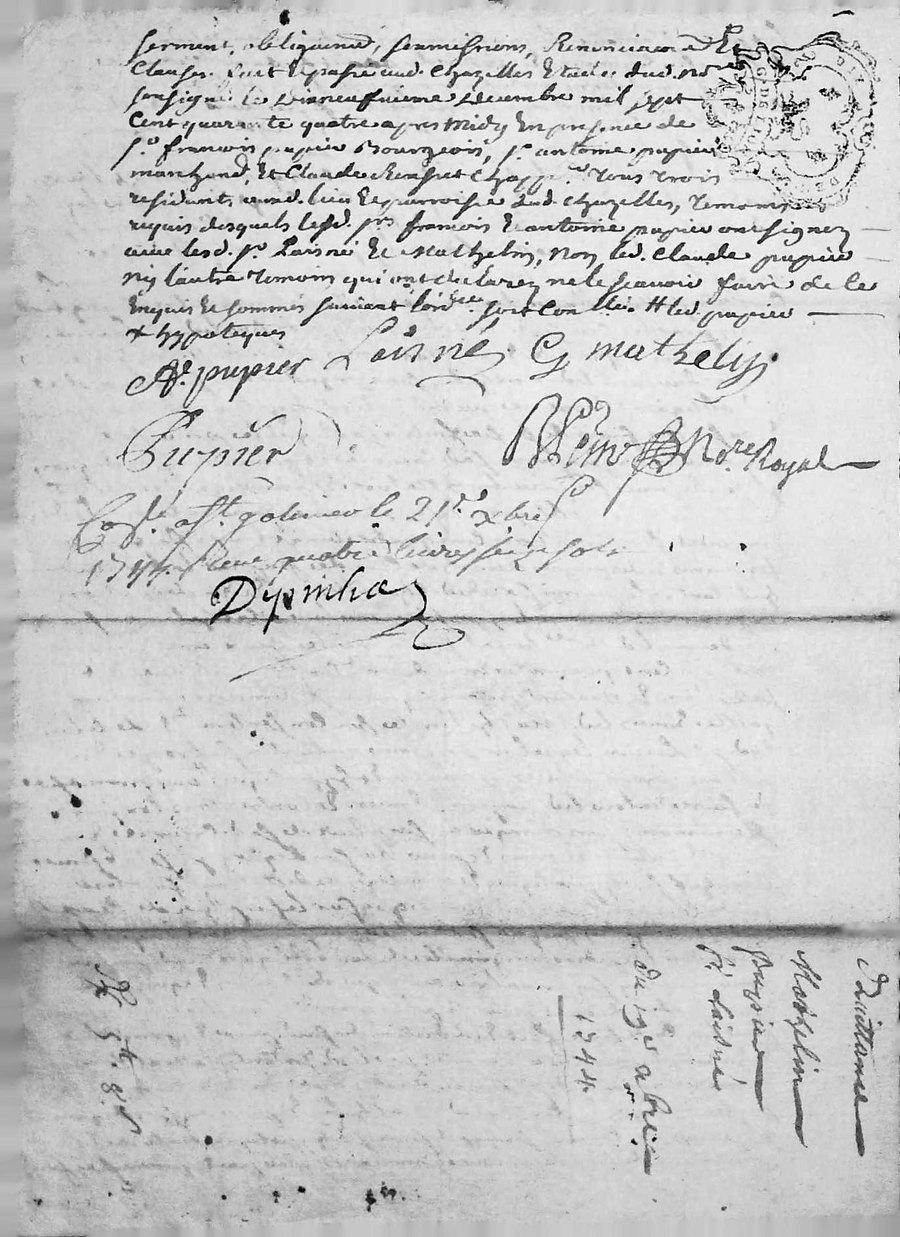 serment, obligeans, soumissions, Renonciaons Et
Clauses. fait Et passé aud. Chazelles Etude dud. no.re
soussigné le Dixneufvieme Decembre mil sept
Cent quarante quatre apres Midy En presence de
s.r francois pupier Bourgeois, s.r antoine pupier
marchand, Et Claude app.re tous trois
residants aud. lieu Et parroisse dud. Chazelles, temoins
requis desquels lesd. s.rs francois Et antoine pupier ont signez
avec lesd. s.r Laisné Et Mathelin, Non led. Claude pupier
Ny l'autre temoin qui ont declarez ne le scavoir faire de ce
Enquis Et sommés suivant l'ord.ce soit Con.llé. # led. pupier
+ hypoteques
A. pupier Laisné G mathelin
Pupier
No.re Royal
Con.lé a s.t galmier le 21.e xbre
1744. Receu quatre livres seize sols
Quittance
Mathelin
Pupier
s.r Laisné
du 19.e xbre
1744